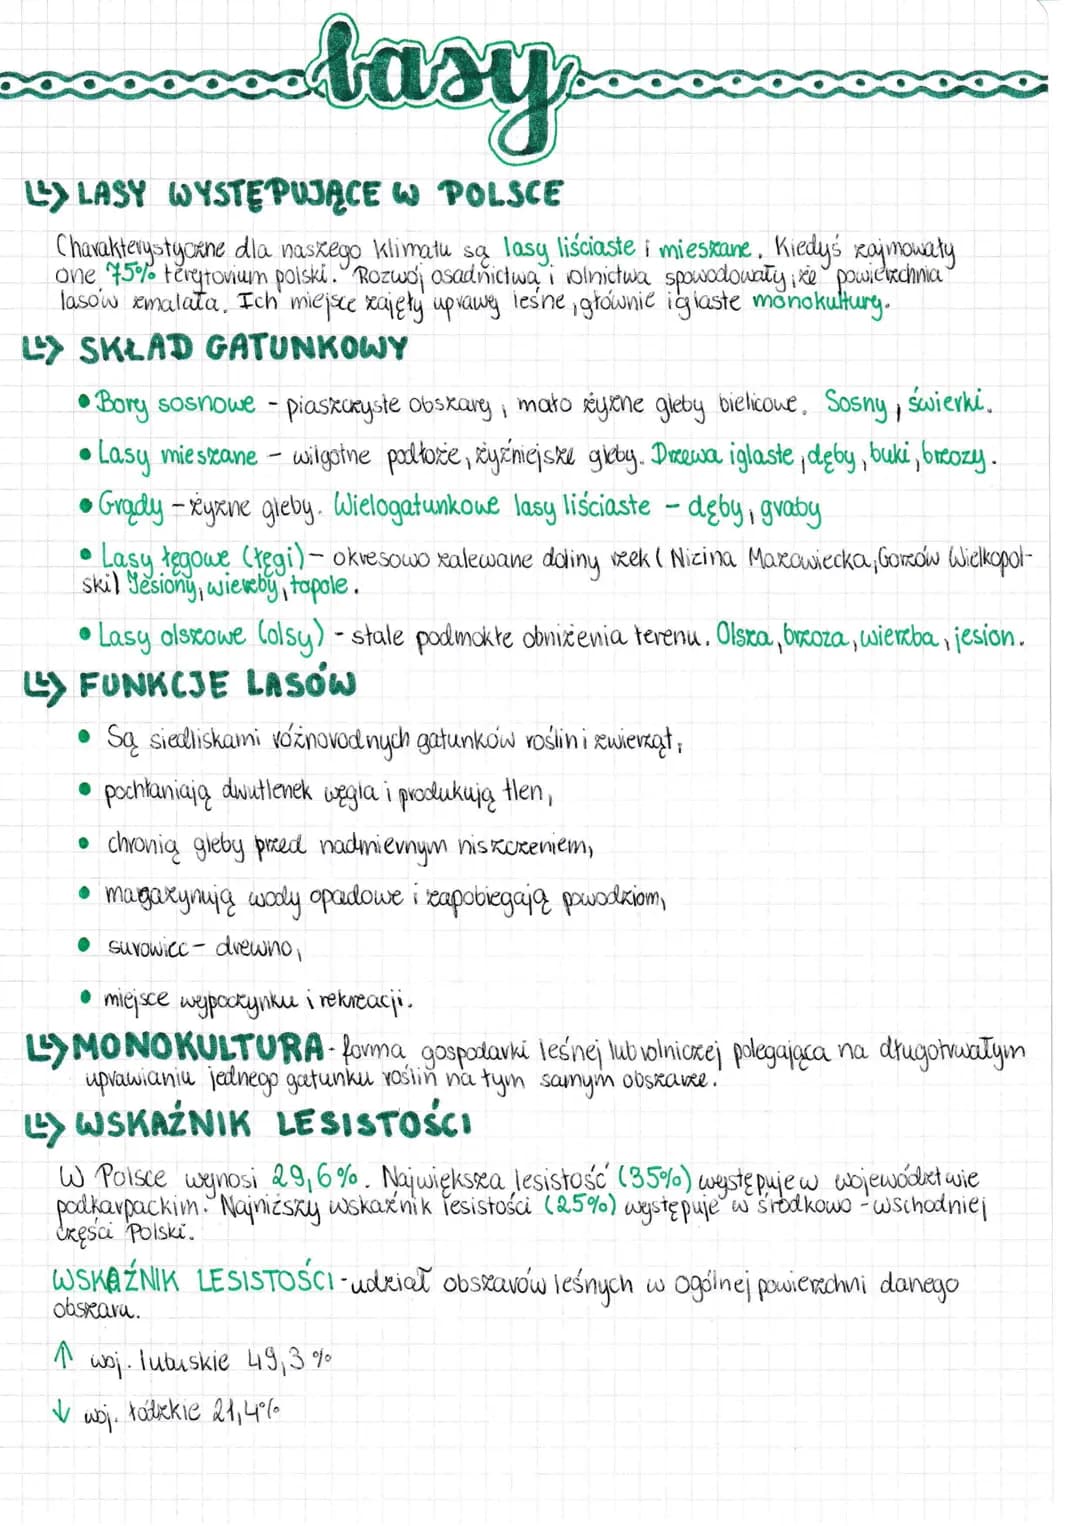 Lasy
LASY WYSTĘPUJĄCE W POLSCE
Charakterystyczne dla naszego klimatu są lasy liściaste i mieszane. Kiedyś zajmowały
one 75% terytorium polski. Rozwój osadnictwa i rolnictwa spowodowały, że powierzchnia
lasów zmalała. Ich miejsce zajęły uprawy leśne, głównie iglaste monokultury.
SKŁAD GATUNKOWY
• Bory sosnowe - piaszczyste obszary, mało żyzne gleby bielicowe. Sosny, świerki.
• Lasy mieszane - wilgotne podłoże, żyźniejsze gleby. Drzewa iglaste, dęby, buki, brzozy.
• Grądy - żyzne gleby. Wielogatunkowe lasy liściaste - dęby, graby
• Lasy łęgowe (łęgi) - okresowo zalewane doliny rzek (Nizina Mazowiecka, Gorzów Wielkopol-
ski) Jesiony, wierzby, topole.
• Lasy olszowe (olsy) - stale podmokłe obniżenia terenu. Olsza, brzoza, wierzba, jesion.
FUNKCJE LASÓW
• Są siedliskami różnorodnych gatunków roślin i zwierząt,
• pochłaniają dwutlenek węgla i produkują tlen,
• chronią gleby przed nadmiernym niszczeniem,
• magazynują wody opadowe i zapobiegają powodziom,
• surowiec - drewno,
• miejsce wypoczynku i rekreacji.
MONOKULTURA - forma gospodarki leśnej lub rolniczej polegająca na długotrwałym
uprawianiu jednego gatunku roślin na tym samym obszarze.
WSKAŹNIK LESISTOŚCI
W Polsce wynosi 29,6%. Największa lesistość (35%) występuje w województwie
podkarpackim. Najniższy wskaźnik lesistości (25%) występuje w środkowo-wschodniej
części Polski.
WSKAŹNIK LESISTOŚCI - udział obszarów leśnych w ogólnej powierzchni danego
obszaru.
↑ woj. lubuskie 49,3%
↓ woj. łódzkie 21,4%